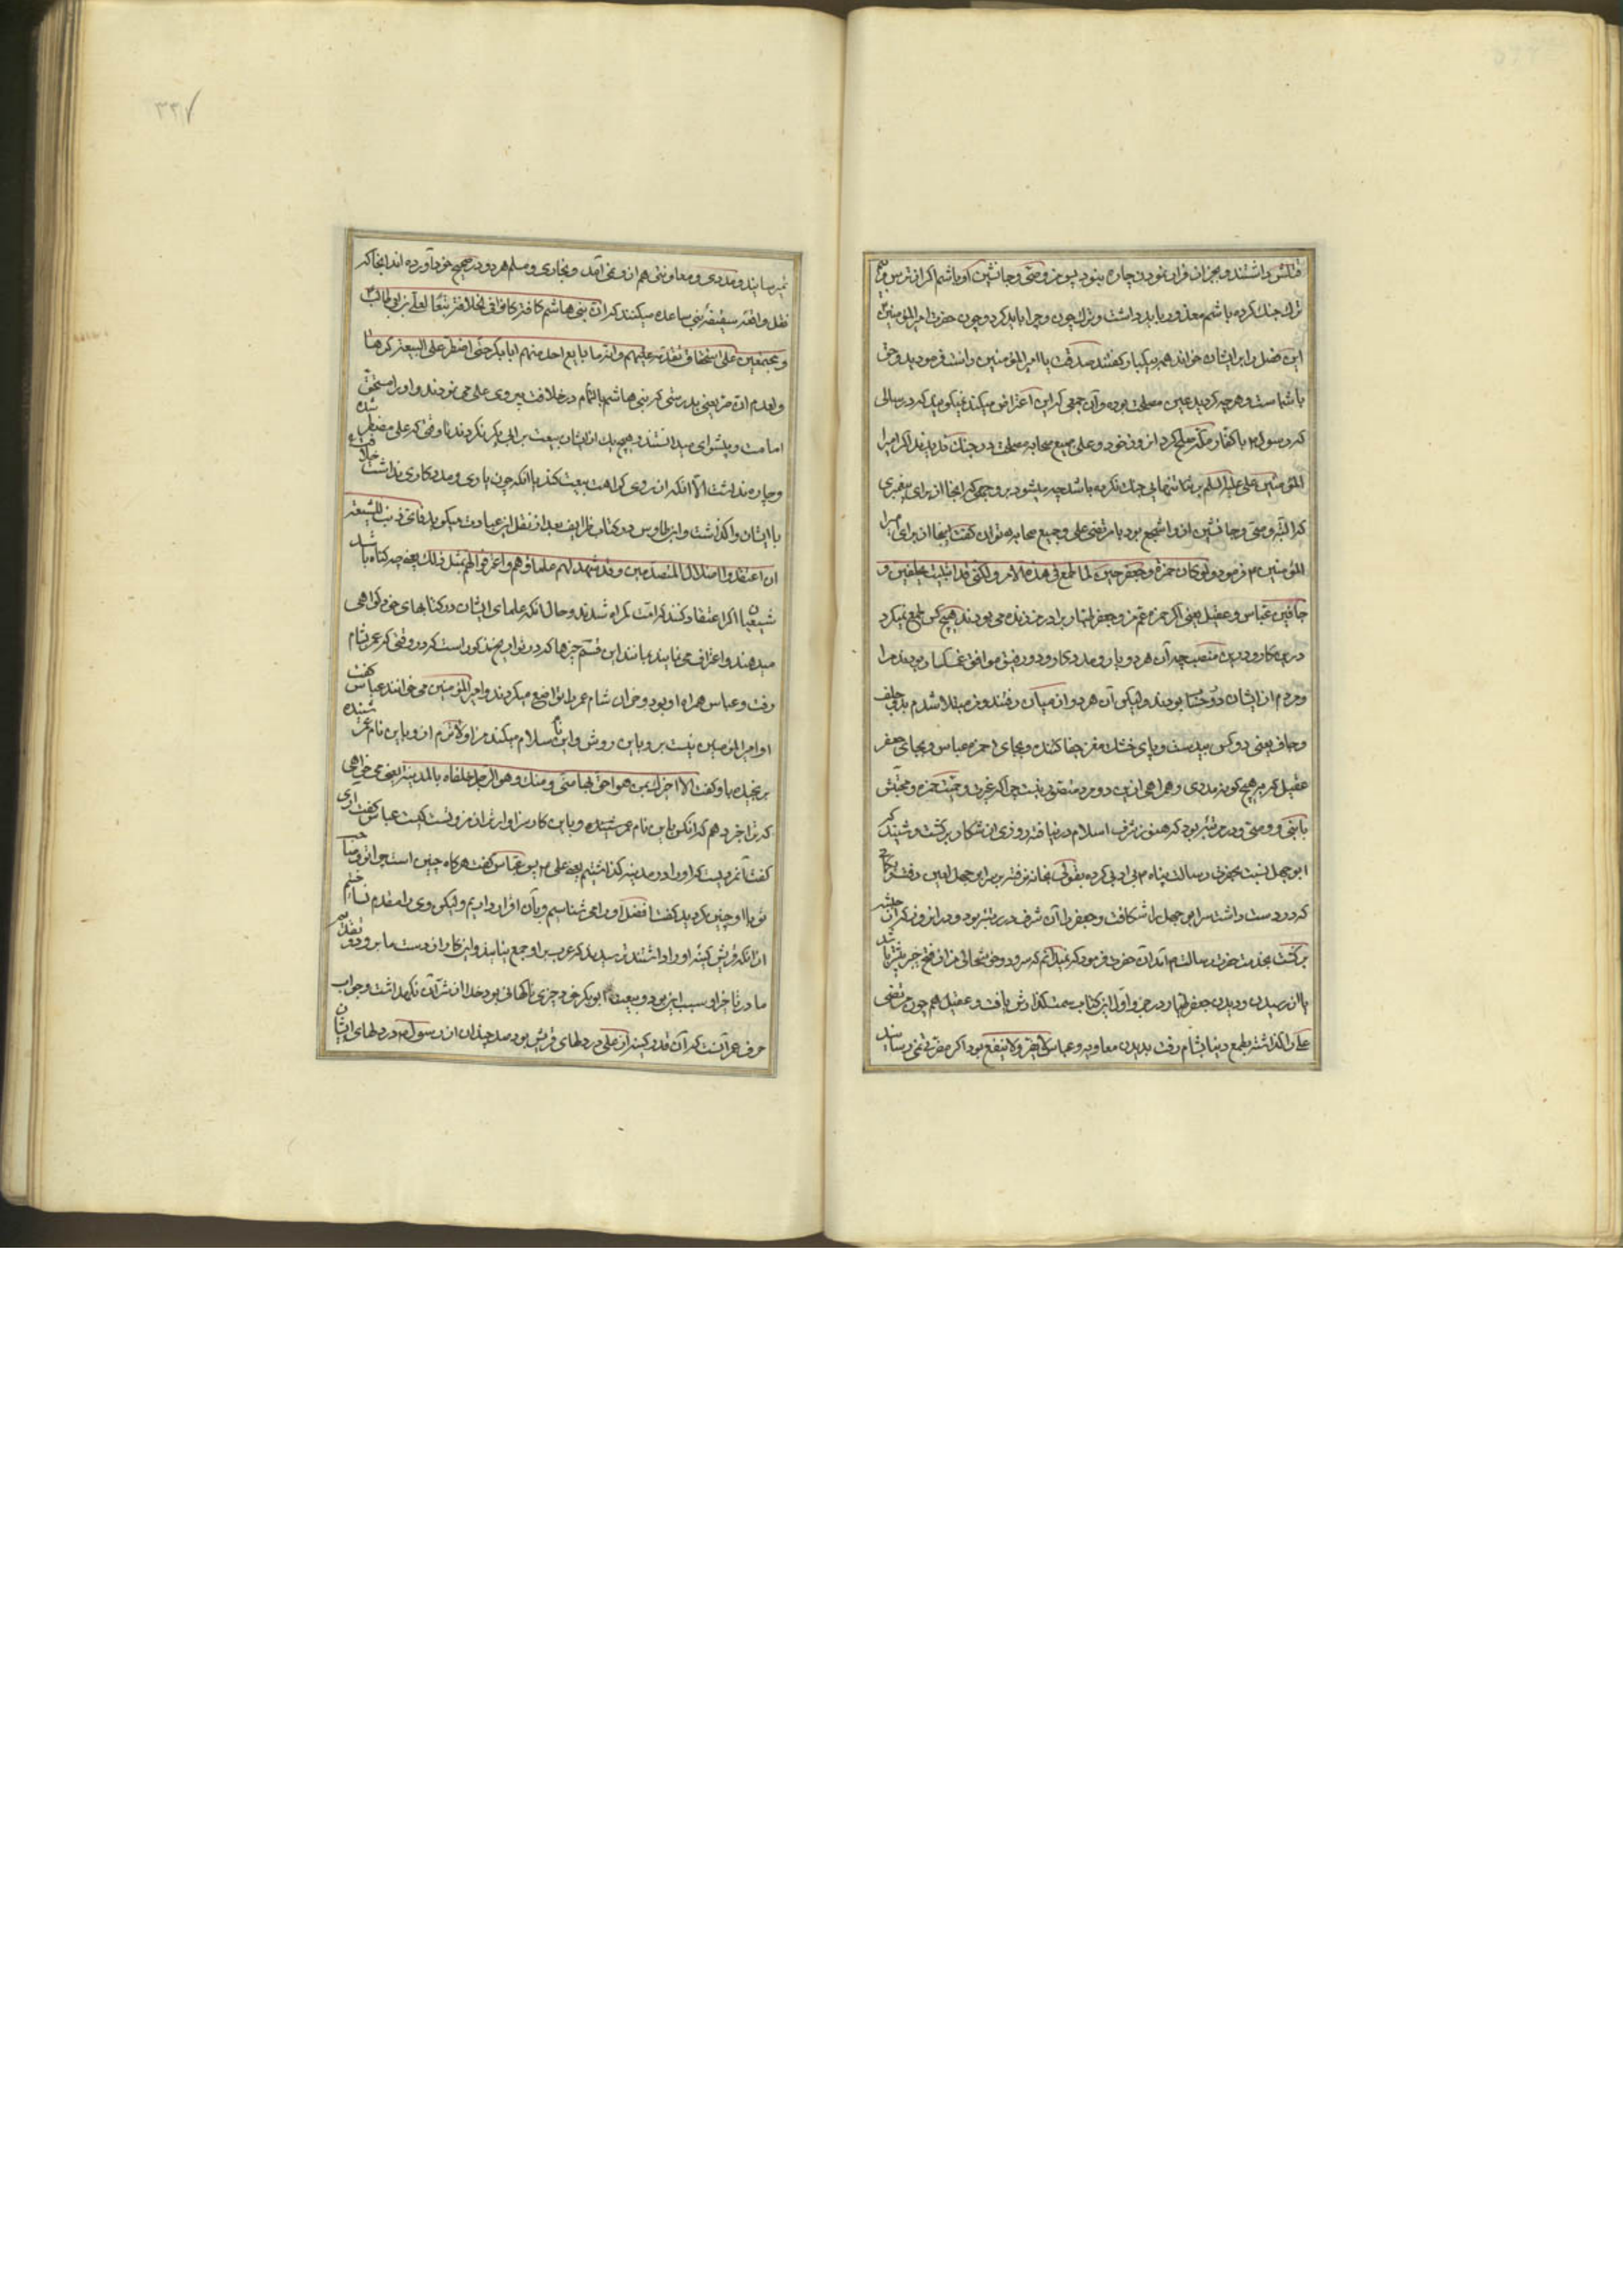 قتلش داشتند و بجز از فرار نمودن چاره نبود پس من وصی و جانشین او باشم اگر از ترس
ترك جنك كرده باشم معذور باید داشت و ترك چون و چرا باید كرد و چون حضرت امیر المؤمنین
این فصل را بر ایشان خواند همه بیكبار گفتند صدقت یا امیر المؤمنین راست فرمودید و حق
با شماست و هرچه كردید عین مصلحت بوده و آن جمعی كه این اعتراض میكنند نمیكویند كه در سالی
كه رسول با كفار مكه صلح كرد از و خود و علی و جمیع صحابه مصلحت در جنك ندیدند اگر امیر
المؤمنین علی علیه السلم به تنهایی جنك نكرده باشد چه میشود بر وجهی كه آنجا از برای پیغمبری
كه البته وصی و جانشین او و اشجع بود با مرتضی علی و جمیع صحابه میتوان گفت اینجا از برای امیر
المؤمنین فرمود ولو كان حمزة و جعفر حیین لما طمع فی هذه الامر ولكنی قد ابتلیت بجلفین و
جافین عباس و عقیل یعنی اگر حمزه عم من و جعفر طیار برادر من زنده می بودند هیچ كس طمع نمیكرد
درین كار و درین منصب چه آن هر دو یار و مددكار و دو رفیق موافق غمگسار بودند مرا
و مردم از ایشان در حساب بودند ولیكن آن هر دو از میان رفتند و من مبتلا شدم بدو جلف
و جاف یعنی دو كس بیدست و پای خشك مغز جفا كننده و بجای حمزه عباس و بجای جعفر
عقیل كه هیچ كونه مددی و همراهی ازین دو مرد متصور نیست چرا كه غیرت و حمیت حمزه و محبتش
با نبی و وصی در مرتبه بود كه هنوز شرف اسلام در نیافته روزی از شكار بركشت و شنید كه
ابوجهل نسبت بحضرت رسالت پناه بی ادبی كرده بقولی بخانه نرفته بر سر ابوجهل لعین رفت و بكمانی
كه در دست داشت سر ابوجهل را شكافت و جعفر را آن شرف و رتبه بود در انروز كه از حبشه
بركشت بخدمت حضرت رسالت آمد آن حضرت فرمود كه نمیدانم كه سرور و خوشحالی من از فتح خیبر بیشتر باشد
یا از رسیدن و دیدن جعفر طیار و در جزو اول این كتاب سمت گذارش یافت و عقیل هم چون مرتضی
علی را گذاشته بطمع دنیا بشام رفت بدیدن معاویه و عباس لا یضر ولا ینفع بود اگر مضرتی نمی رسانید
نمیرسانید و مددی و معاونتی هم از و نمی آمد و بخاری و مسلم هر دو در صحیح خود آورده اند آنجا كه
نقل واقعه سقیفه بنی ساعده میكنند كه ان بنی هاشم كافة كانوا فی الخلافة تبعا لعلی بن ابی طالب
و مجتمعین علی استحقاق تقدمه علیهم و انه ما بایع احد منهم ابا بكر حتی اضطر علی البیعة كرها
ولعدم الناصر یعنی بدرستی كه بنی هاشم بالتمام در خلافت پیروی علی می نمودند و او را مستحق
امامت و پیشوای میدانستند و هیچ یك از ایشان بیعت بر ابی بكر نكردند تا وقتی كه علی مضطر شده
و چاره نداشت الا آنكه از روی كراهت بیعت كند با آنكه چون یاری و مددكاری نداشت خلافت
با ایشان واگذاشت و ابن طاوس در كتاب طرایف بعد از نقل این عبارت میكوید فای ذنب للشیعة
ان اعتقدوا ضلال المتقدمین وقد شهد لهم علماؤهم و اعترفوا لهم بمثل ذلك یعنی چه گناه باشد
شیعیان اگر اعتقاد كنند كه امت گمراه شدند و حال آنكه علمای ایشان در كتابهای خود گواهی
میدهند و اعتراف می نمایند بمانند این قسم چیزها كه در تواریخ مذكور است كه در وقتی كه عمر بشام
رفت و عباس همراه او بود و مردان شام عمر را تواضع میكردند و امیر المؤمنین می خواندند عباس گفت
او امیر المؤمنین نیست بر و باین روش و این نام سلام میكنند من اولاترم از و باین نام عمر شنیده
برنجید و با او گفت الا اخبرك بمن هو احق بها منی و منك و هو الرجل خلفناه بالمدینة یعنی می خواهی
كه ترا خبر دهم كه آنكس باین نام عمر شنیده و باین كار سزاوارتر از من و تست كیست عباس گفت آری
گفت آنمردیست كه او را در مدینه گذاشتیم یعنی علی پس عباس گفت هرگاه چنین است چرا تو و صاحب
تو با او چنین كردید گفت افضل او را می شناسیم و بآن اقرار داریم ولیكن وی را مقدم نساختیم
از آنكه قریش كینه او را داشتند ترسیدیم كه عرب بر او جمع نیایند و این كار از دست ما برود و تقدیم
ما و تاخیر او سبب این بود و بیعت ابوبكر خود چیزی ناگهانی بود خدا از شر آن نگهداشت و جواب
حرف عمر آنست كه آن قدر كینه از علی در دلهای قریش بود صد چندان از رسول در دلهای ایشان